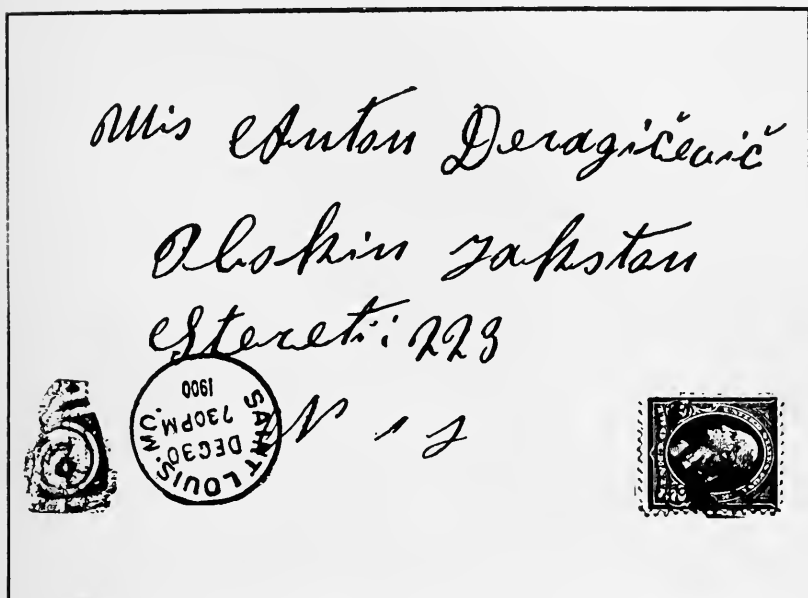 Mis Anton Deragičević
Obskin Jakstan
Stereti: 223
SAINT LOUIS. MO.
DEC 30
730 PM
1900